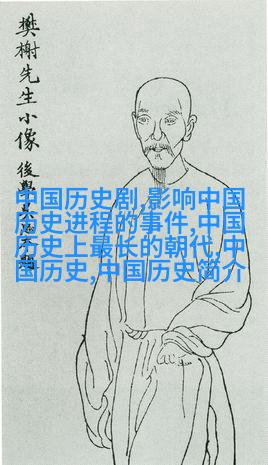 樊榭先生小像
後學
中国历史剧,影响中国
历史进程的事件,中国
历史上最长的朝代,中
国历史,中国历史简介